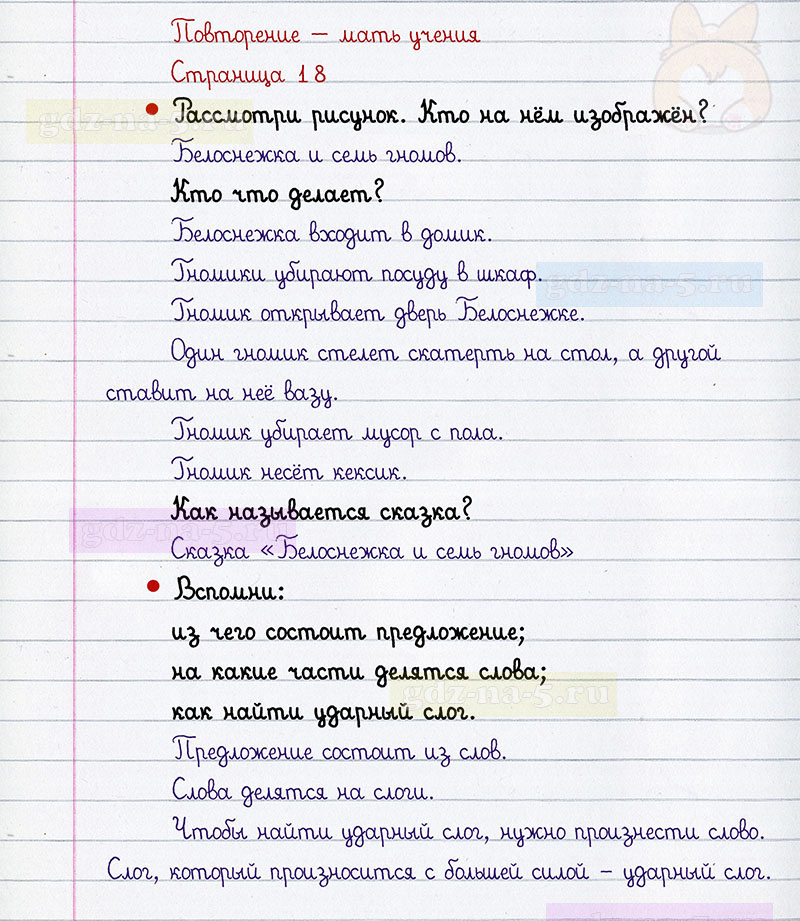 Повторение – мать учения
Страница 18
• Рассмотри рисунок. Кто на нём изображён?
gdz-na-5.ru
Белоснежка и семь гномов.
Кто что делает?
Белоснежка входит в домик.
Гномики убирают посуду в шкаф.
gdz-na-5.ru
Гномик открывает дверь Белоснежке.
Один гномик стелет скатерть на стол, а другой
ставит на неё вазу.
Гномик убирает мусор с пола.
Гномик несёт кексик.
Как называется сказка?
gdz-na-5.ru
Сказка «Белоснежка и семь гномов»
• Вспомни:
из чего состоит предложение;
на какие части делятся слова;
gdz-na-5.ru
как найти ударный слог.
Предложение состоит из слов.
Слова делятся на слоги.
Чтобы найти ударный слог, нужно произнести слово.
Слог, который произносится с большей силой – ударный слог.